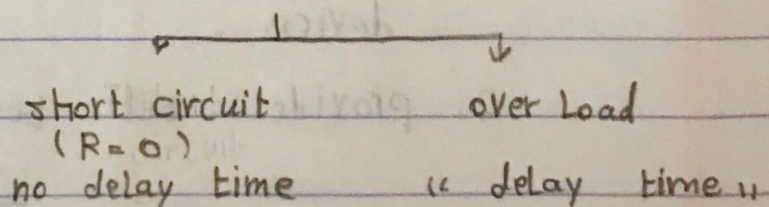 short circuit over Load
(R = 0)
no delay time " delay time "